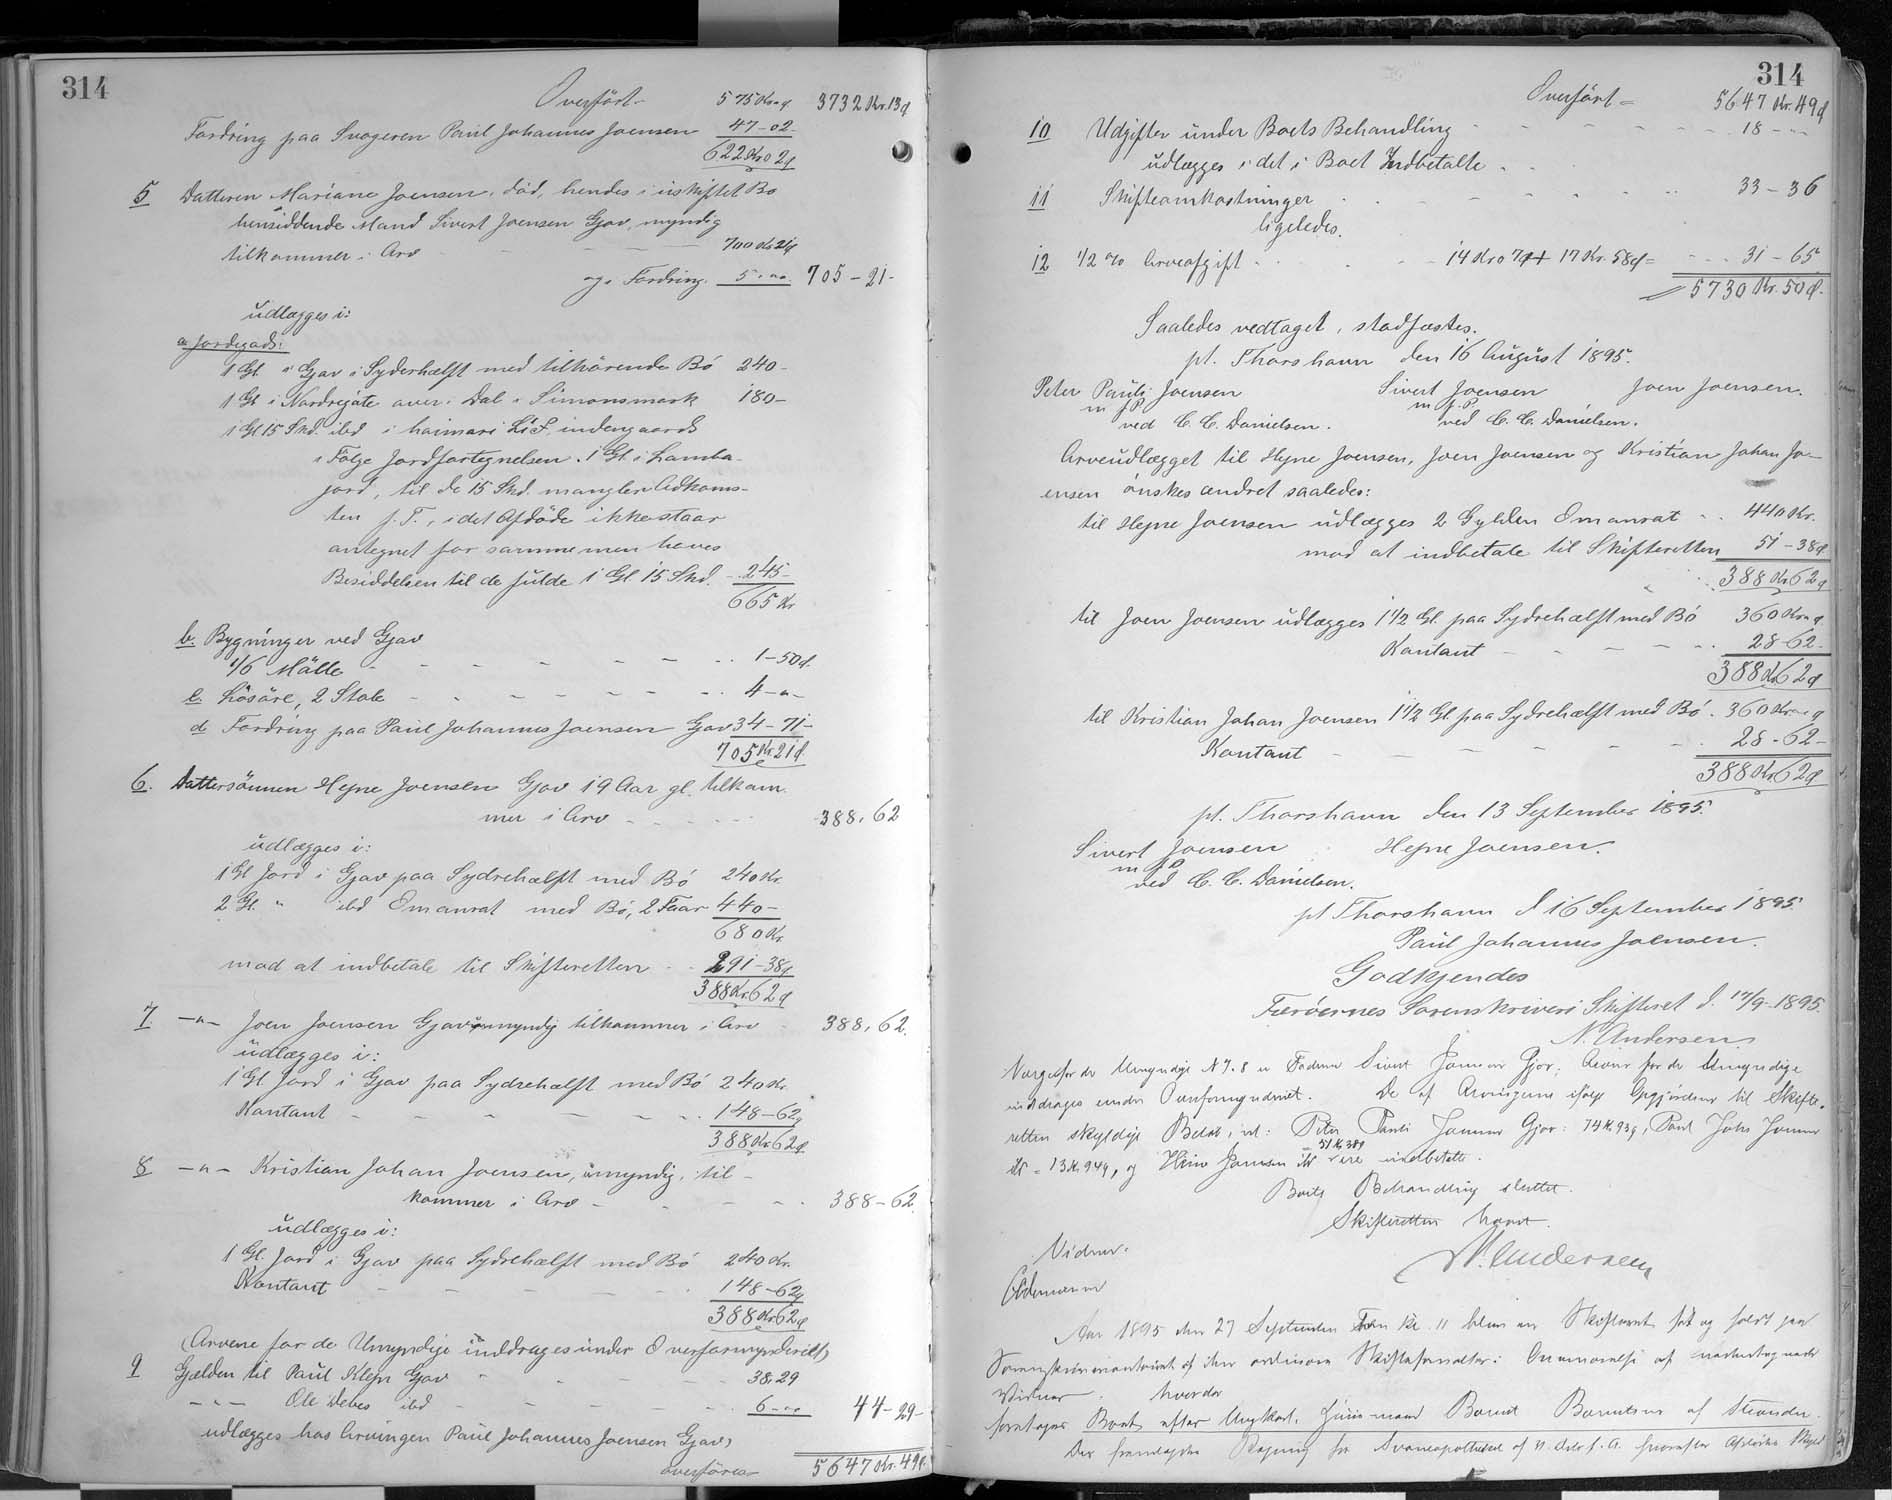 314
Overført - 575 Kr " ø 3732 Kr. 13 ø
Fordring paa Svogeren Paul Johannes Joensen 47-02-
622 Kr 02 ø
5 Datteren Mariane Joensen, død, hendes i uskiftet Bo
hensiddende Mand Sivert Joensen Gjov, myndig
tilkommer i Arv - - - 700 Kr 21 ø
og i Fordring. 5 - "" 705-21-
udlægges i:
a Jordegods:
1 Gl. i Gjov i Syderhælft med tilhørende Bø 240-
1 Gl i Nordregøte aver i Dal i Simonsmark 180-
1 Gl 15 Skd. ibd i haimari Lið, indengaards
i Følge Jordfortegnelsen 1 Gl. i Lamba-
jord, til de 15 Skd. mangler Adkoms-
ten p. T., idet Afdøde ikke staar
antegnet for samme men haves
Besiddelsen til de fulde 1 Gl. 15 Skd. 245-
665 Kr
b. Bygninger ved Gjov
1/6 Mølle - - - - - - 1-50 ø.
c. Løsøre, 2 Stole - - - - - - 4-"-
d Fordring paa Paul Johannes Joensen Gjov 34-71-
705 Kr 21 ø.
6. Dattersønnen Hejne Joensen Gjov 19 Aar gl. tilkom-
mer i Arv - - - - 388,62
udlægges i:
1 Gl Jord i Gjov paa Sydrehælft med Bø 240 Kr.
2 Gl. " ibd Omanrat med Bø, 2 Faar 440-
680 Kr.
mod at indbetale til Skifteretten - - 291-38 ø
388 Kr. 62 ø
7 -"- Joen Joensen Gjov umyndig tilkommer i Arv 388,62.
udlægges i:
1 Gl. Jord i Gjov paa Sydrehælft med Bø 240 Kr.
Kontant - - - - - - - 148-62 ø
388 Kr 62 ø
8 -"- Kristian Johan Joensen, umyndig, til-
kommer i Arv - - - - 388-62.
udlægges i:
1 Gl. Jord i Gjov paa Sydrehælft med Bø 240 Kr.
Kontant - - - - - - 148-62 ø
388 Kr 62 ø
(Arvene for de Umyndige inddrages under Overformynderiet)
9 Gjælden til Paul Klejn Gjov - - - 38,29
-"- Ole Debes ibd - - - - 6-"" 44-29-
udlægges hos Arvingen Paul Johannes Joensen Gjov,
overføres 5647 Kr. 49 ø.
314
Overført = 5647 Kr. 49 ø
10 Udgifter under Boets Behandling - - - - - - 18 - ""
udlægges i det i Boet Indbetalte - -
11 Skifteomkostninger - - - - - - - 33-36
ligeledes.
12 1/2 % Arveafgift - - - - 14 Kr 07 ø + 17 Kr. 58 ø = - - - 31-65
5730 Kr. 50 ø.
Saaledes vedtaget, stadfæstes.
pt. Thorshavn den 16 August 1895.
Peter Pauli Joensen Sivert Joensen Joen Joensen.
m f P m f. P
ved C. C. Danielsen. ved C. C. Danielsen.
Arveudlægget til Hejne Joensen, Joen Joensen og Kristian Johan Jo-
ensen ønskes ændret saaledes:
til Hejne Joensen udlægges 2 Gylden Omanrat - - 440 Kr.
mod at indbetale til Skifteretten 51-38 ø
388 Kr 62 ø
til Joen Joensen udlægges 1 1/2 Gl. paa Sydrehælft med Bø 360 Kr " ø
Kontant - - - - - 28-62-
388 Kr 62 ø
til Kristian Johan Joensen 1 1/2 Gl. paa Sydrehælft med Bø. 360 Kr " ø
Kontant - - - - - - - 28-62-
388 Kr 62 ø
pt. Thorshavn den 13 September 1895.
Sivert Joensen Hejne Joensen.
m f P
ved C. C. Danielsen.
pt Thorshavn d 16 September 1895.
Paul Johannes Joensen.
Godkjendes
Færøernes Sorenskriveri Skifteret d. 17/9-1895.
N. Andersen
Værge for de Umyndige N 7. 8 er Faderen Sivert Joensen Gjov; Arven for de Umyndige
inddrages under Overformynderiet. De af Arvingerne ifølge Opgjørelsen til Skifte-
retten skyldige Beløb, nl: Peter Pauli Joensen Gjov: 74 Kr. 93 ø, Poul Johs Joensen
51 Kr 38 ø
ibd = 13 Kr. 94 ø, og Heine Joensen ibd ere indbetalte.
Boets Behandling sluttet.
Skifteretten hævet.
Vidner. N. Andersen
Aar 1895 den 27 September Form Kl. 11 blev en Skifteret sat og holdt paa
Sorenskriverikontoret af den ordinære Skifteforvalter i Overværelse af undertegnede
Vidner. hvorda
foretoges Boet efter Ungkarl. Huusmand
Der fremlagdes Regning fra Svaneapotheket